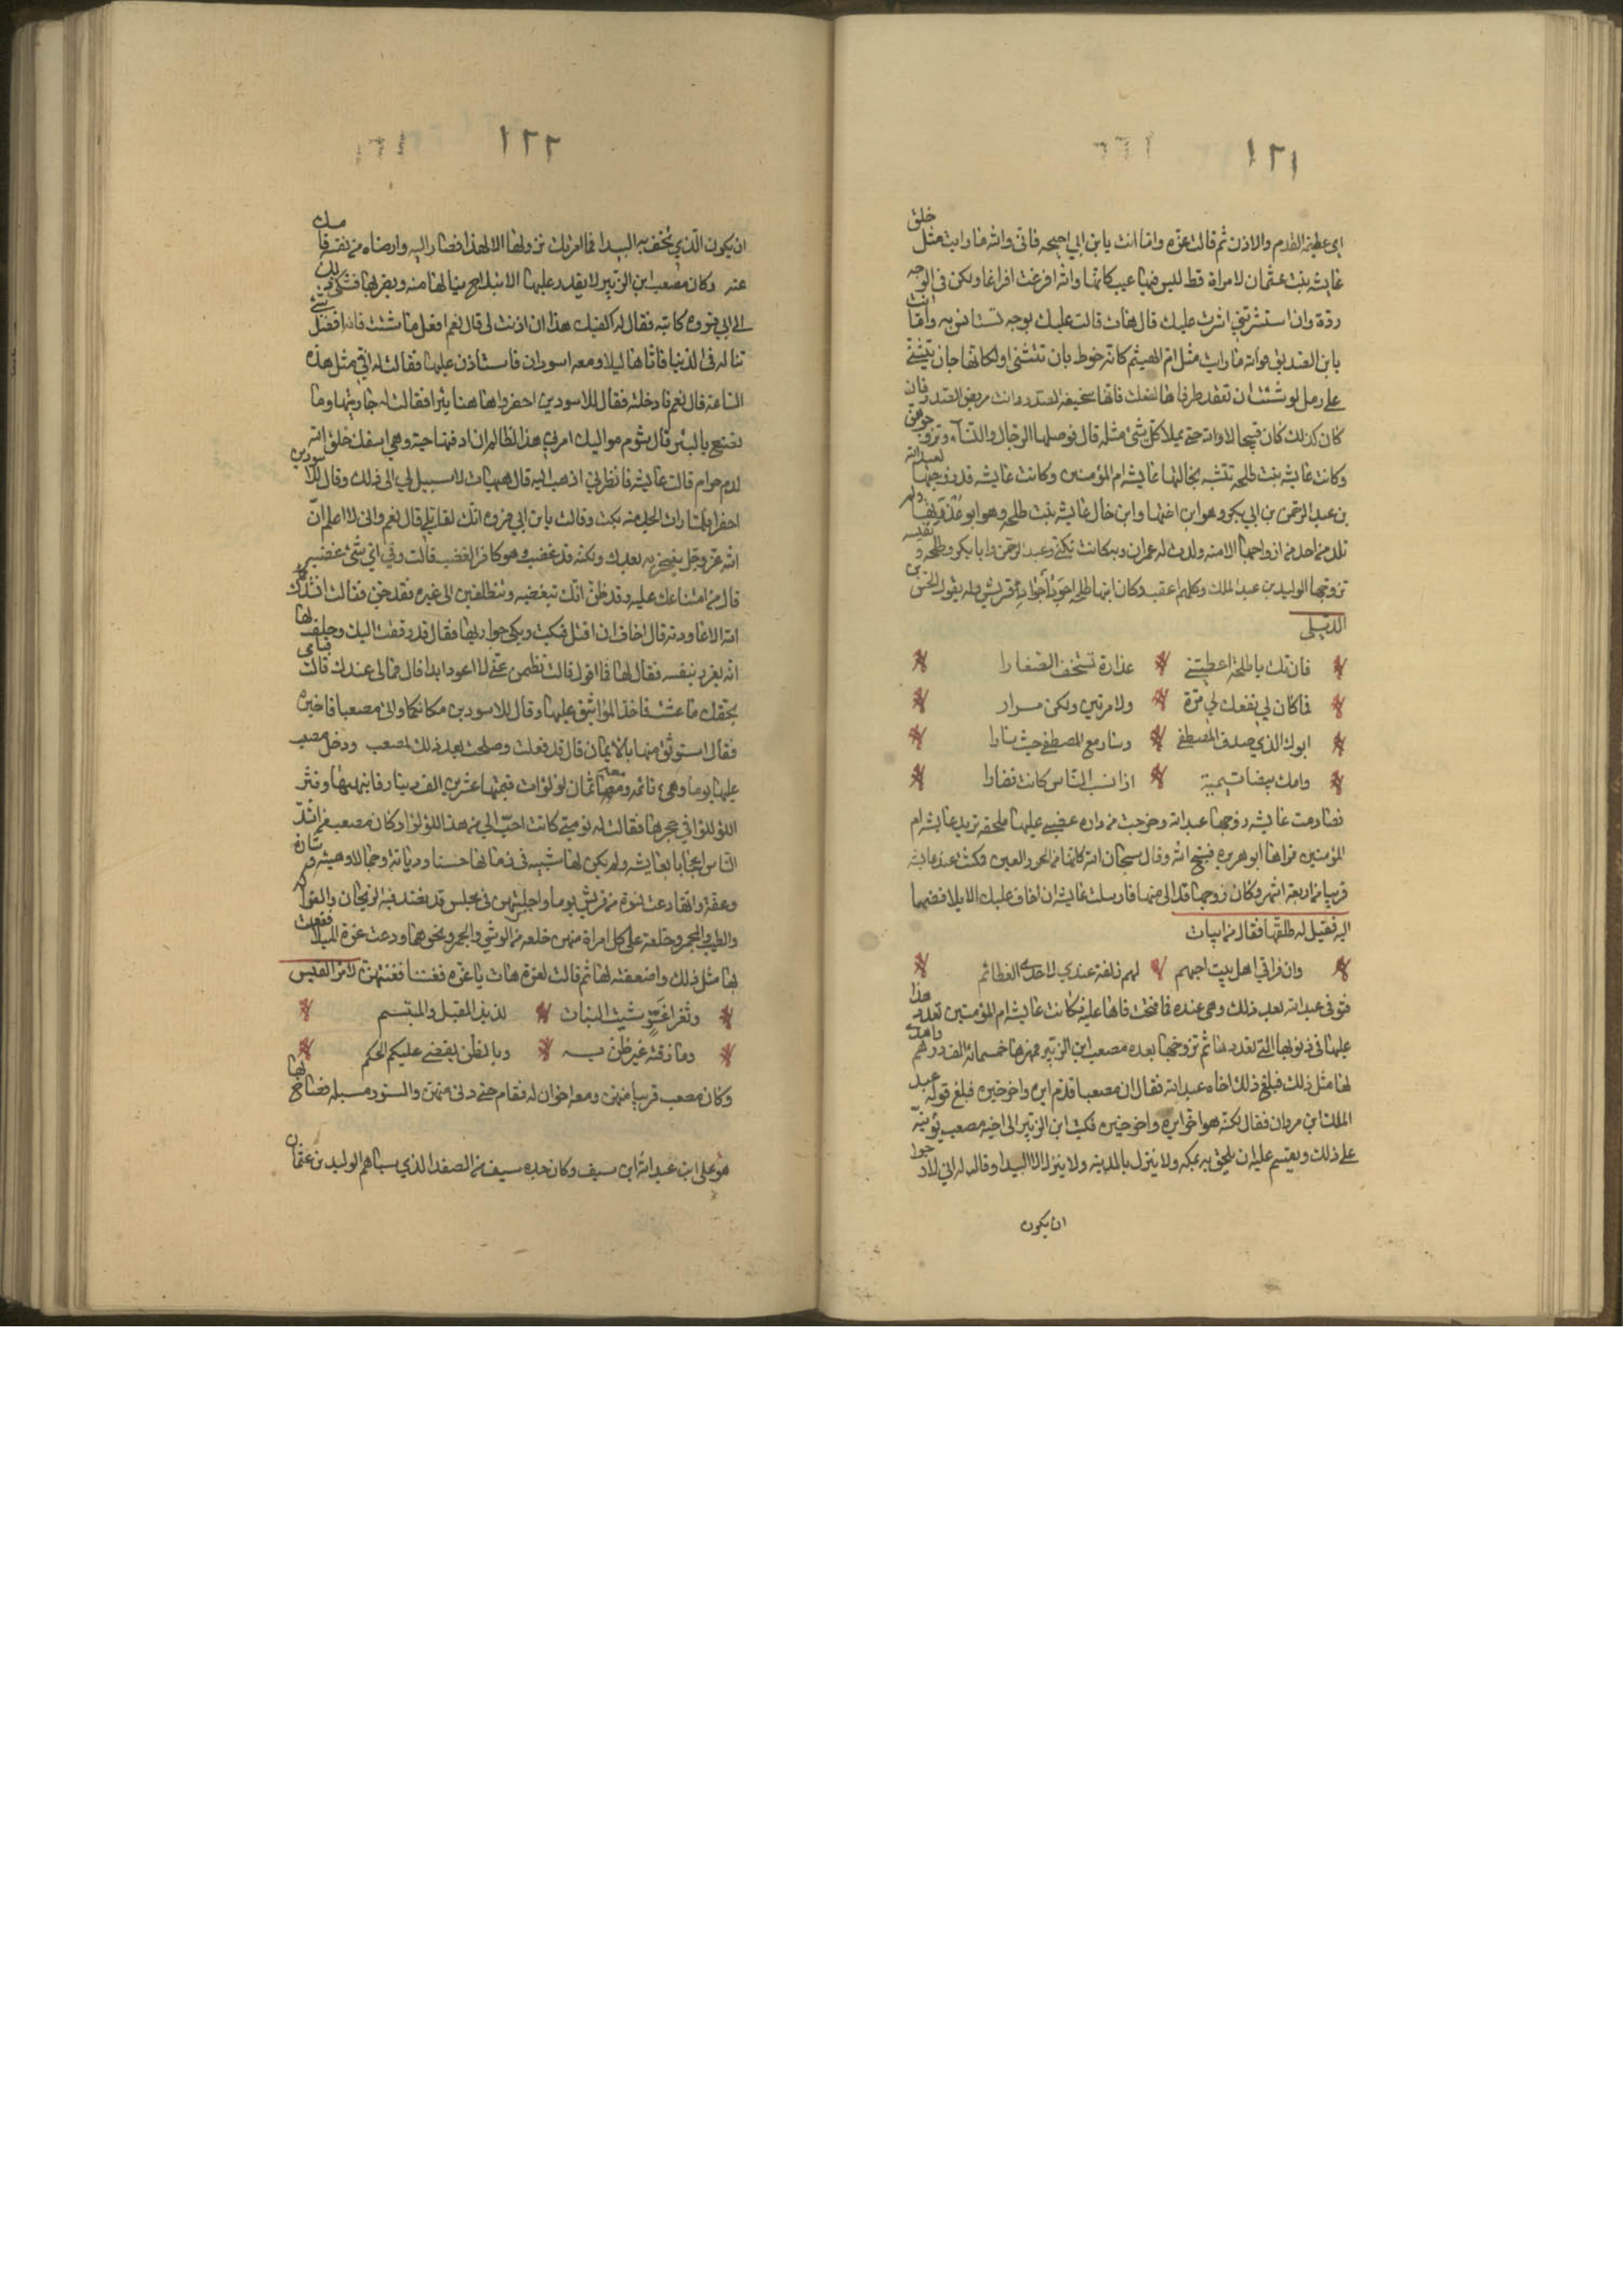 ١٢١
اي عظيمة القدم والاذن ثم قالت عزة واما انت يا بن ابي احيحه فاني والله ما رايت مثل خلق
عايشه بنت عثمان لامراة قط ليس فيها عيب كانما والله افرغت افراغا ولكن في الوجه
ردة وان استشرتني اشرت عليك قال هات قالت عليك بوجه تستانس به واما انت
يا بن الصديق فوالله ما رايت مثل ام الهيثم كانه خوط بان تتثنى او لكانها جان يتثنى
على رمل لو شئت ان تعقد طرفاها لفعلت فانها سخيفة الصدر وانت عريض الصدر فان
كان كذلك كان قبيحا لا والله حتى يملا كل شئ مثله قال فوصلها الرجال والنساء وتزوجوهن
وكانت عايشه بنت طلحه تتشبه بخالتها عايشه ام المؤمنين وكانت عايشه قد زوجتها لعبد الله
بن عبد الرحمن بن ابي بكر وهو ابن اخيها وابن خال عايشه بنت طلحه وهو ابو عذرتها ولم
تلد من احد من ازواجها الا منه ولدت له عمران وبه كانت تكنى وعبد الرحمن وابا بكر وطلحه ونفيسه
تزوجها الوليد بن عبد الملك وكلهم اعقب وكان ابنها طلحه اجود اجواد قريش وله يقول الحزين
الديلى
فان تك يا طلحة اعطيتني عذارة تستخف الضفارا
فما كان لي نفعك لي مرة ولا مرتين ولكن مرار
ابوك الذي صدق المصطفى وسار مع المصطفى حيث سارا
وامك بيضا تيمية اذا نسب الناس كانت نضارا
فصارمت عايشه زوجها عبد الله وخرجت من داره غضبى عليها ملحفه تريد عايشه ام
المؤمنين فراها ابو هريره فسبح الله وقال سبحان الله كانها من الحور العين فمكثت عند عايشه
قريبا من اربعة اشهر وكان زوجها قد الى منها فارسلت عايشه ان اخاف عليك الايلا فضمها
اليه فقيل له طلقها فقال من ابيات
وان فراقي اهل بيت احبهم لهم زلفة عندي لاحدى العظائم
فتوفى عبد الله بعد ذلك وهي عنده فما فتحت فاها عليه فكانت عايشه ام المؤمنين تعد هذا
عليها في ذنوبها التي تعددها ثم تزوجها بعده مصعب ابن الزبير فمهرها خمسمائة الف درهم واهدى
لها مثل ذلك فبلغ ذلك اخاه عبد الله فقال ان مصعبا قدم ايره واخر خيره فبلغ قوله عبد
الملك ابن مروان فقال لكنه هو اخر ايره واخر خيره فكتب ابن الزبير الى اخيه مصعب يؤنبه
على ذلك ويقسم عليه ان يلحق به بمكه ولا ينزل بالمدينه ولا ينزل الا البيدا وقال له اني لارجوا
ان يكون
١٢٢
ان يكون الذي يخسف به البيدا فما امرتك بنزولها الا لهذا فصار اليه وارضاه من نفسه فامسك
عنه وكان مصعب ابن الزبير لا يقدر عليها الا بتلاح ينالها منه ويضربها فشكى ذلك
الى ابي فروه كاتبه فقال له اكفيك هذا ان اذنت لي قال نعم افعل ما شئت فانه افضل شئ
تناله في الدنيا فاتاها ليلا ومعه اسودان فاستاذن عليها فقالت له افي مثل هذه
الساعة قال نعم فادخلته فقال للاسودين احفروا هاهنا بئرا فقالت له جاريتها وما
تصنع بالبئر قال شؤم مواليك امرني هذا الظالم ان ادفنها حية وهي اسفك خلق الله
لدم حرام قالت عايشه فانظرني اذهب اليه قال هيهات لا سبيل لي الى ذلك وقال للاسودين
احفرا فلما رات الجد منه بكت وقالت يا بن ابي فروه انك لقاتلي قال نعم واني لا اعلم ان
الله عز وجل سيخزيه بعدك ولكنه قد غضب وهو كافر الغضب قالت وفي اي شئ غضبه
قال من امتناعك عليه وقد ظن انك تبغضيه وتتطلعين الى غيره فقد جن فقالت انشدك
الله الا عاودته قال اخاف ان اقتل فبكت وبكى جواريها فقال قد رققت اليك وحلف لها
انه يغرر بنفسه فقال لها فما اقول قالت تضمن عني ان لا اعود ابدا قال فما لي عندك قالت قيامي
بحقك ما عشت فاخذ المواثيق عليها وقال للاسودين مكانكما واتى مصعبا فاخبره
فقال استوثق منها بالايمان قال قد فعلت وصلحت بعد ذلك لمصعب ودخل مصعب
عليها يوما وهي نائمه ومعه ثمان لؤلؤات قيمتها عشرين الف دينار فانبهها ونثر
اللؤلؤ في حجرها فقالت له نومتي كانت احب الي من هذا اللؤلؤ وكان مصعب من اشد
الناس اعجابا بعايشه ولم يكن لها شبيه في زمانها حسنا ودماثة وجمالا وهيئه ومتانه
وعفة وانها دعت نسوة من قريش يوما واجلستهن في مجلس قد نضد فيه الريحان والفواكه
والطيب والمجمر وخلعت على كل امراة منهن خلعه من الوشي والحمر ونحوهما ودعت عزة الميلا ففعلت
بها مثل ذلك واضعفته لها ثم قالت لعزة هات يا عزه فغنينا فغنتهن لامرء القيس
وثغر اغر شتيت النبات لذيذ المقبل والمبتسم
وما ذقته غير ظن به وبالظن يقضى عليكم الحكم
وكان مصعب قريبا منهن ومعه اخوان له فقام حتى دنى منهن والستور مسبله فصاح لها
هو على ابن عبد الله ابن سيف وكان جده سيف من الصغد الذي سباهم الوليد بن عثمان